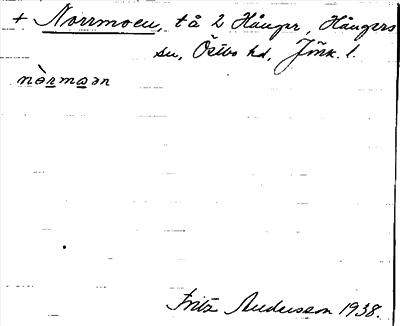 + Norrmoen, tå 2 Hånger, Hångers
sn, Östbo hd, Jmk. l.
nòrmoən
Fritz Andersson 1938.